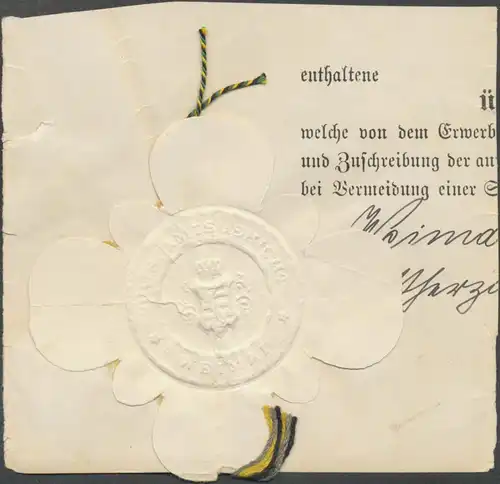 enthaltene
ü
welche von dem Erwerb
und Zuschreibung der au
bei Vermeidung einer S
Weima
therzo
AMTSGERICHT
WEIMAR